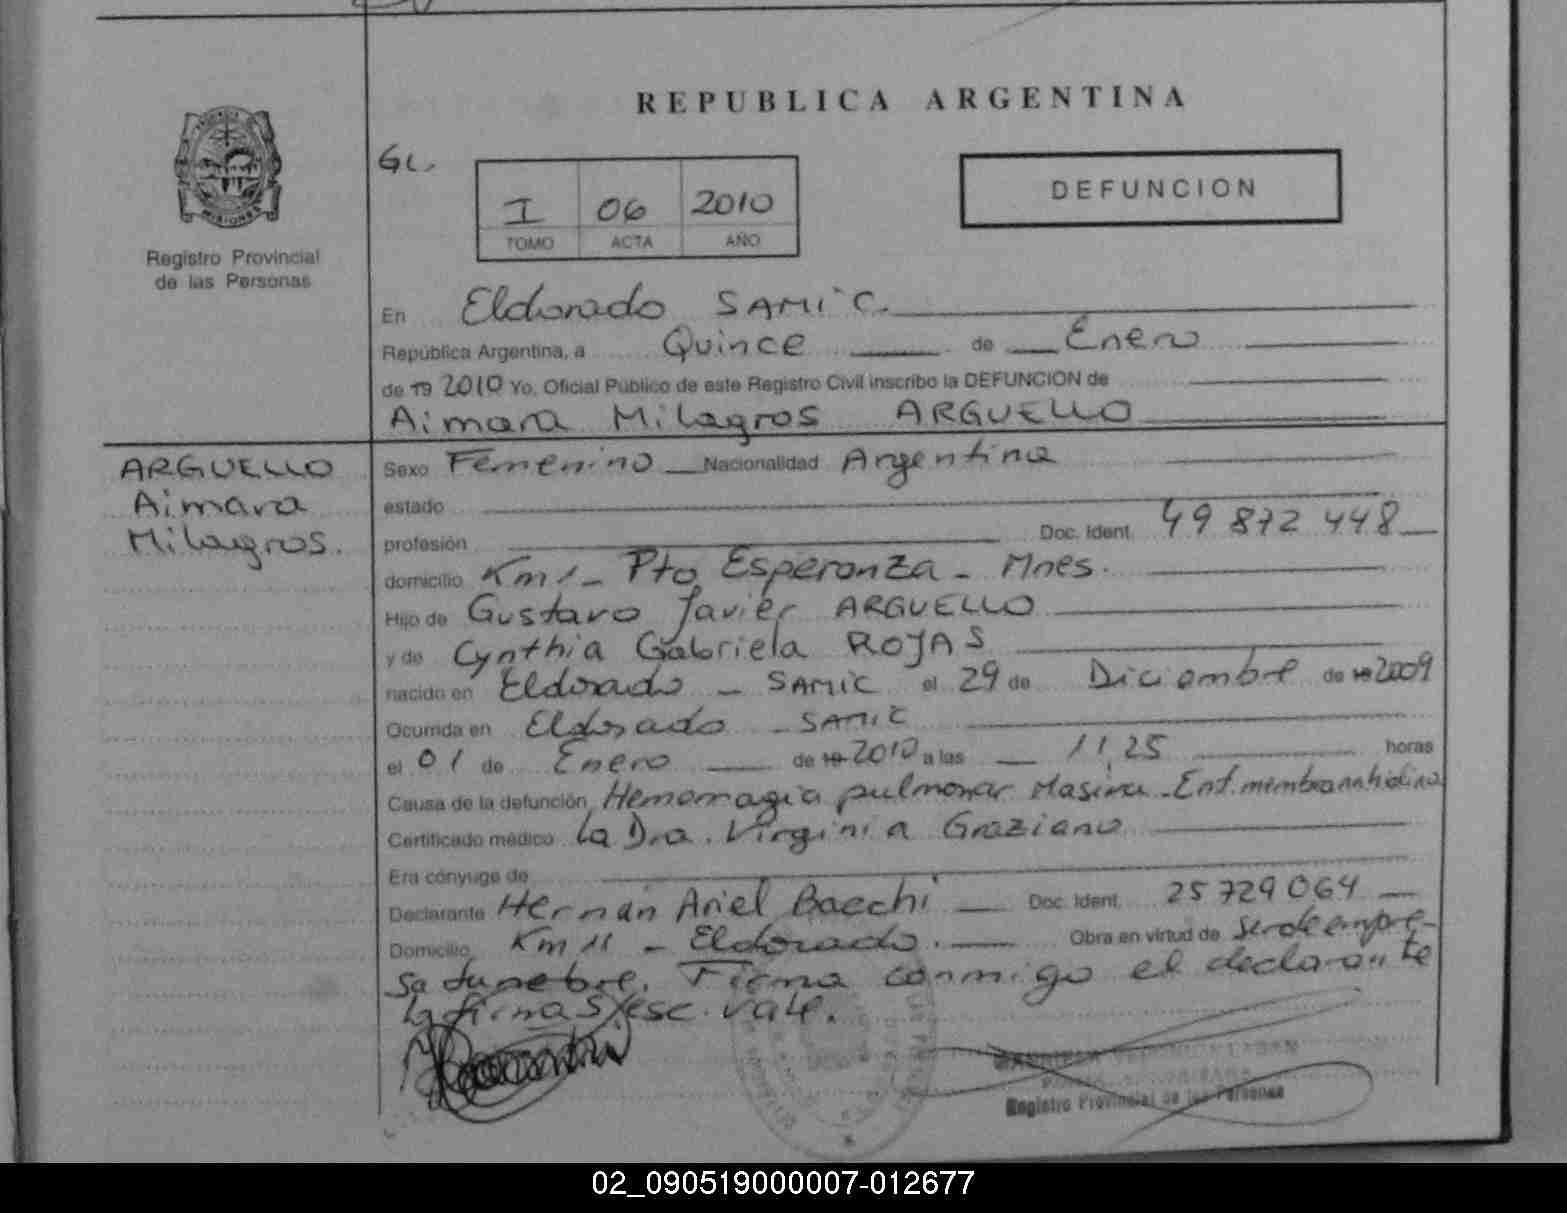 REPUBLICA ARGENTINA
MISIONES
Registro Provincial
de las Personas
GL.
I 06 2010
TOMO ACTA AÑO
DEFUNCION
En Eldorado SAMIC.
República Argentina, a Quince de Enero
de 19 2010 Yo, Oficial Público de este Registro Civil inscribo la DEFUNCION de
Aimara Milagros ARGUELLO
ARGUELLO
Aimara
Milagros.
Sexo Femenino Nacionalidad Argentina
estado
profesión Doc. Ident. 49 872 448
domicilio Km 1 - Pto Esperanza - Mnes.
Hijo de Gustavo Javier ARGUELLO
y de Cynthia Gabriela ROJAS
nacido en Eldorado - SAMIC el 29 de Diciembre de 19 2009
Ocurrida en Eldorado - SAMIC
el 01 de Enero de 19 2010 a las 11,25 horas
Causa de la defunción Hemorragia pulmonar Masiva - Enf. membrana hialina
Certificado médico la Dra. Virginia Graziano
Era cónyuge de
Declarante Hernán Ariel Baechi Doc. Ident. 25 729 064
Domicilio Km 11 - Eldorado. Obra en virtud de ser de empre-
sa funebre. Firma conmigo el declarante
la firma S/esc. vale.
Registro Provincial de las Personas
02_090519000007-012677